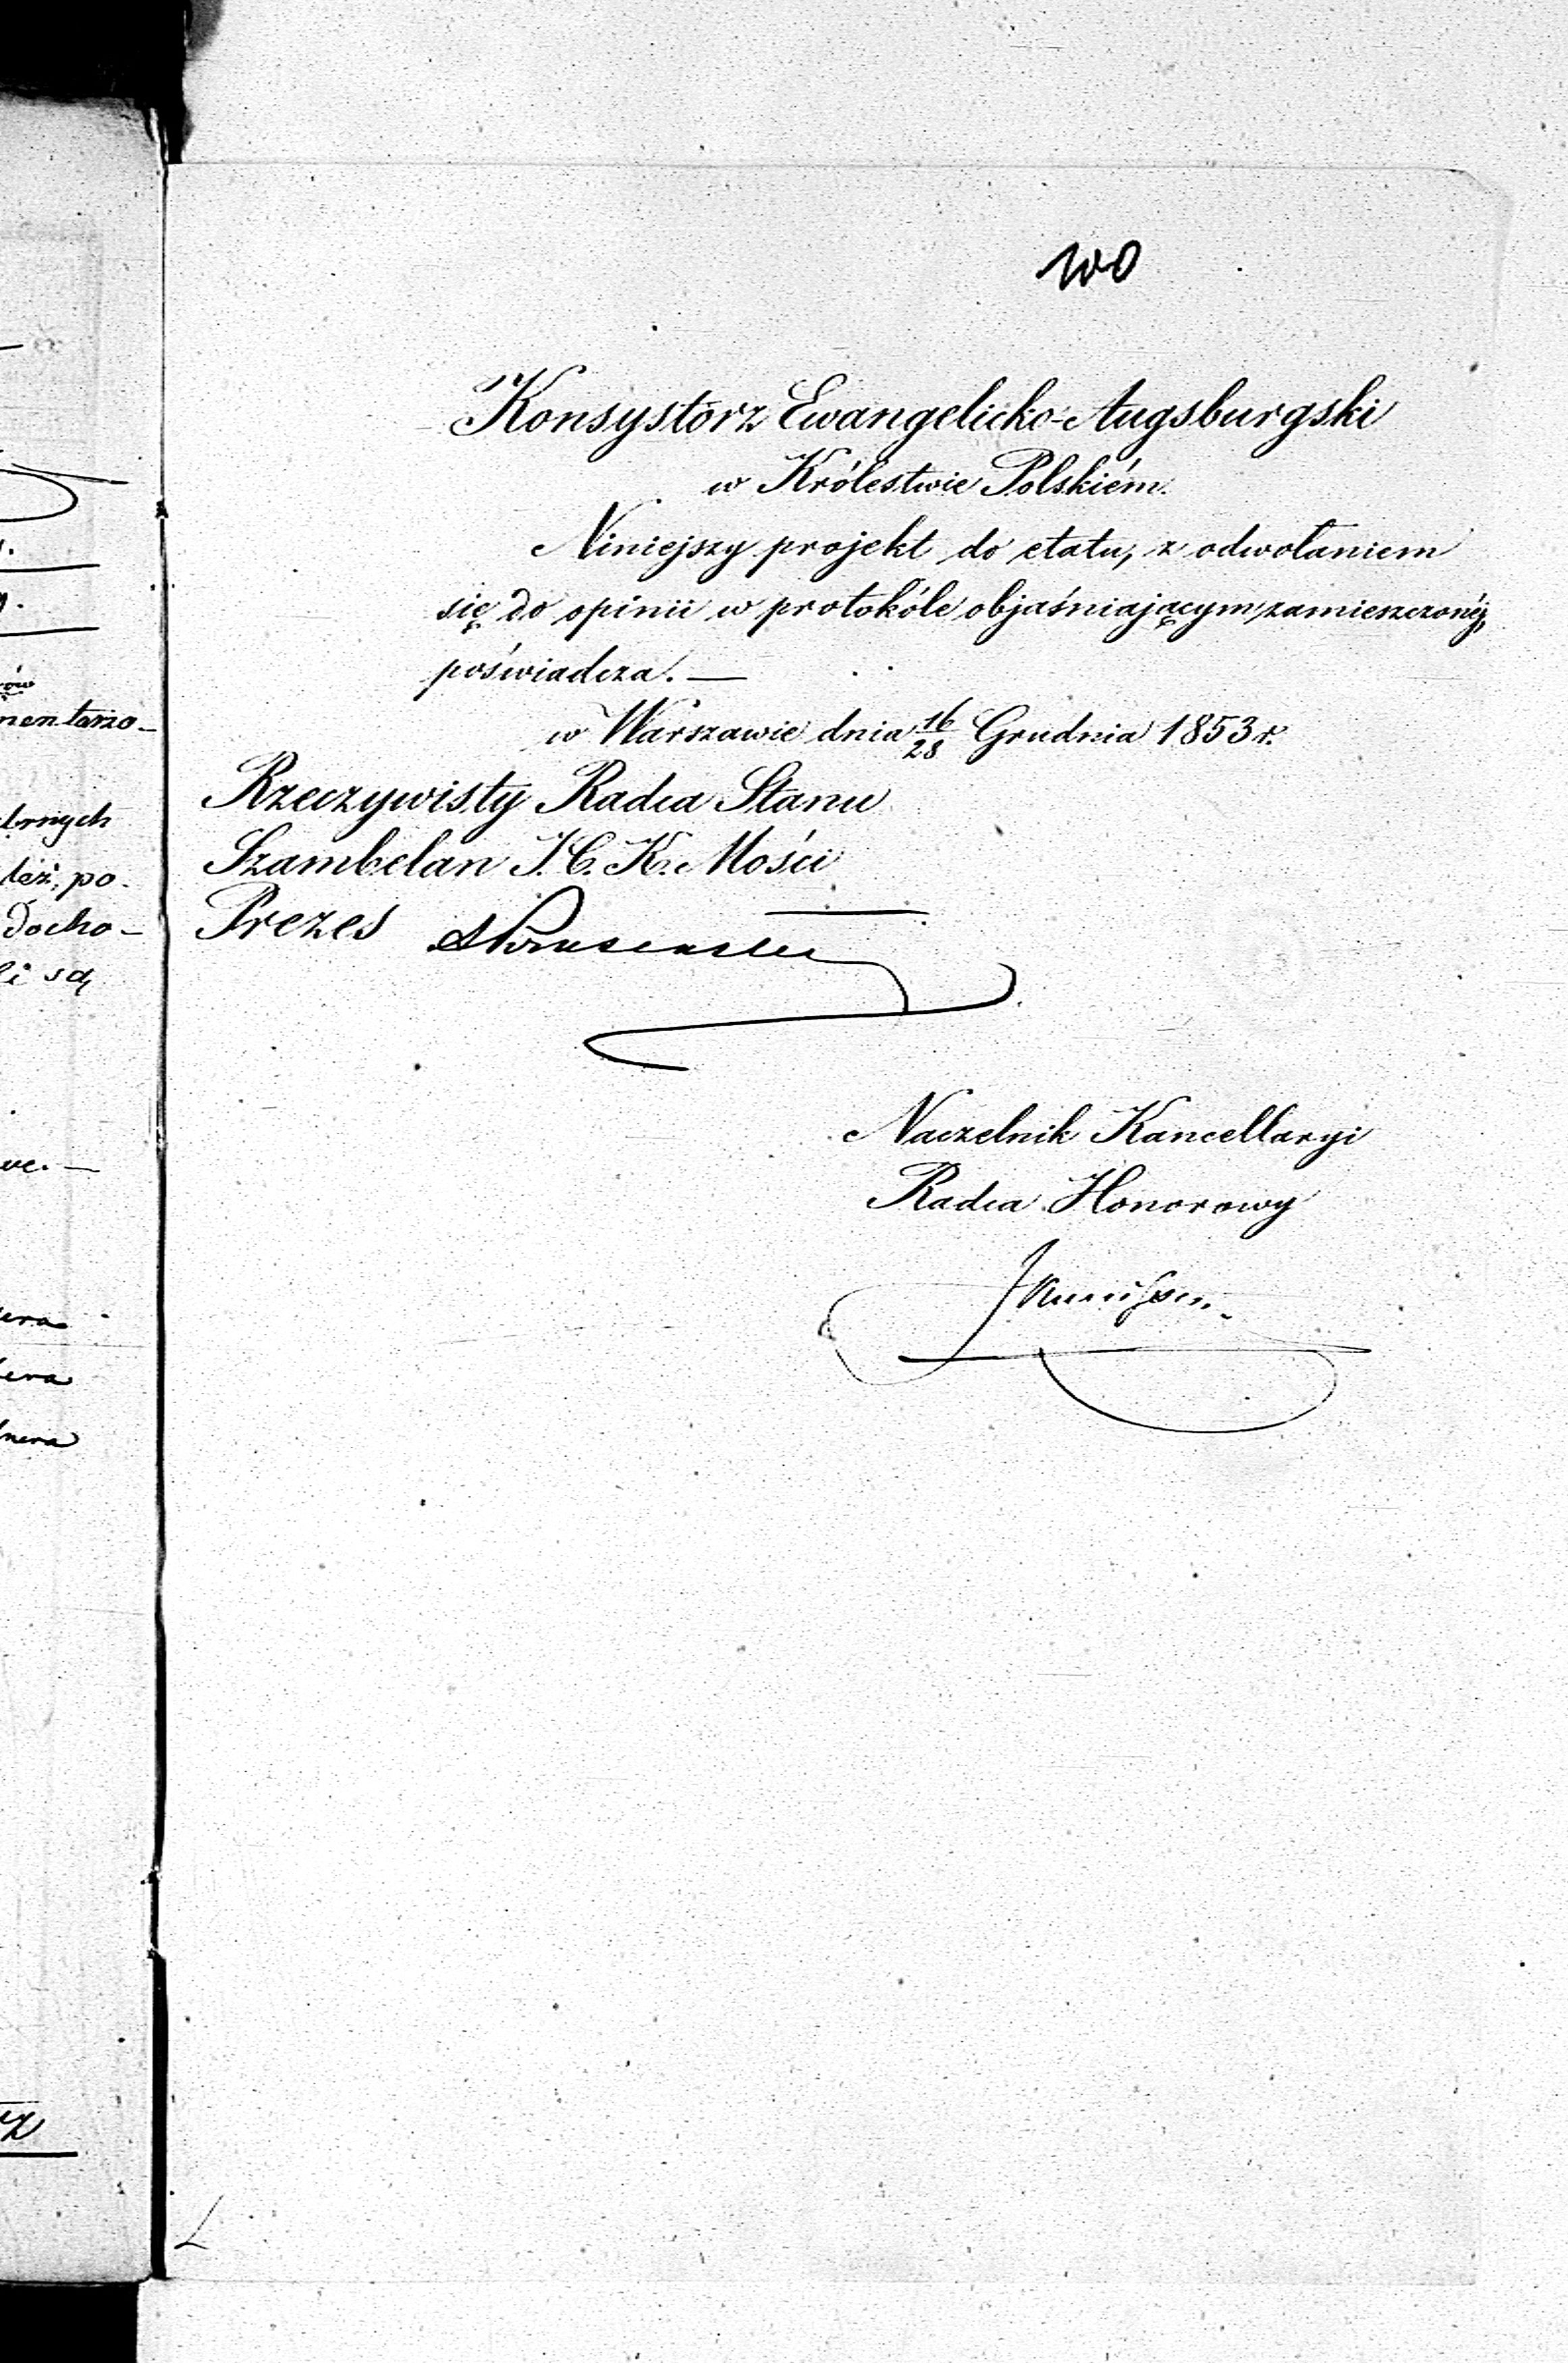 100
Konsystorz Ewangelicko-Augsburgski
w Królestwie Polskiém.
Niniejszy projekt do etatu, z odwołaniem
się do opinii w protokóle objaśniającym zamieszczonéj,
poświadcza. —
w Warszawie dnia 16/28 Grudnia 1853 r.
Rzeczywisty Radca Stanu
Szambelan J. C. K. Mości
Prezes
Naczelnik Kancellaryi
Radca Honorowy